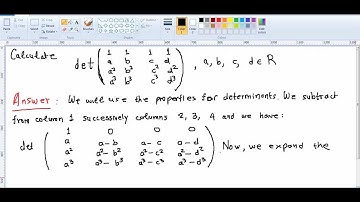 Calculate
det ( 1 1 1 1
a b c d
a² b² c² d²
a³ b³ c³ d³ ) , a, b, c, d ∈ R
Answer : We will use the properties for determinants. We subtract
from column 1 successively columns 2, 3, 4 and we have:
det ( 1 0 0 0
a a-b a-c a-d
a² a²-b² a²-c² a²-d²
a³ a³-b³ a³-c³ a³-d³ ) . Now, we expand the